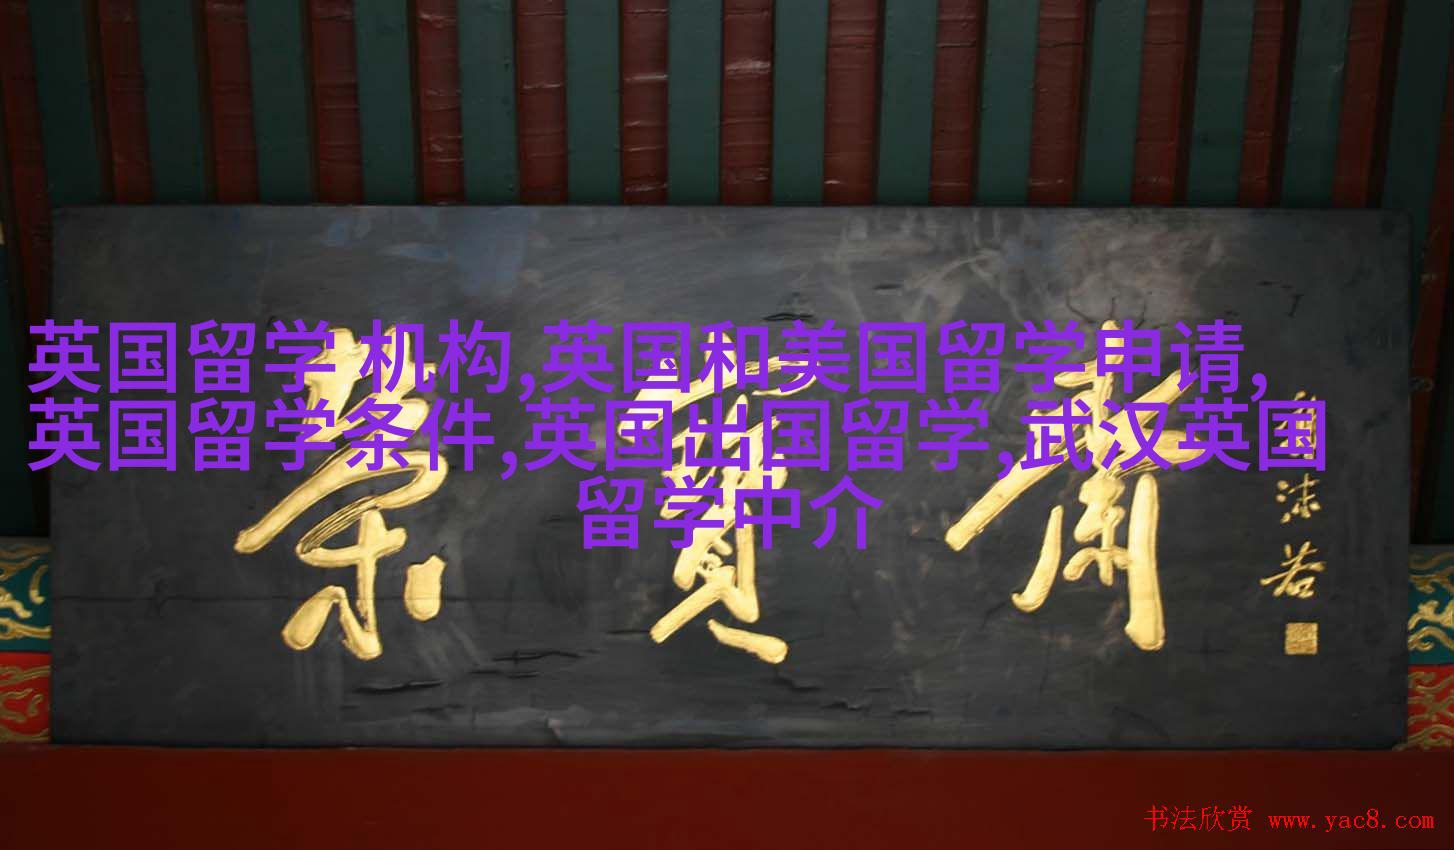 英国留学 机构,英国和美国留学申请,
英国留学条件,英国出国留学,武汉英国
留学中介
荣寶齋
郭沫若
书法欣赏 www.yac8.com